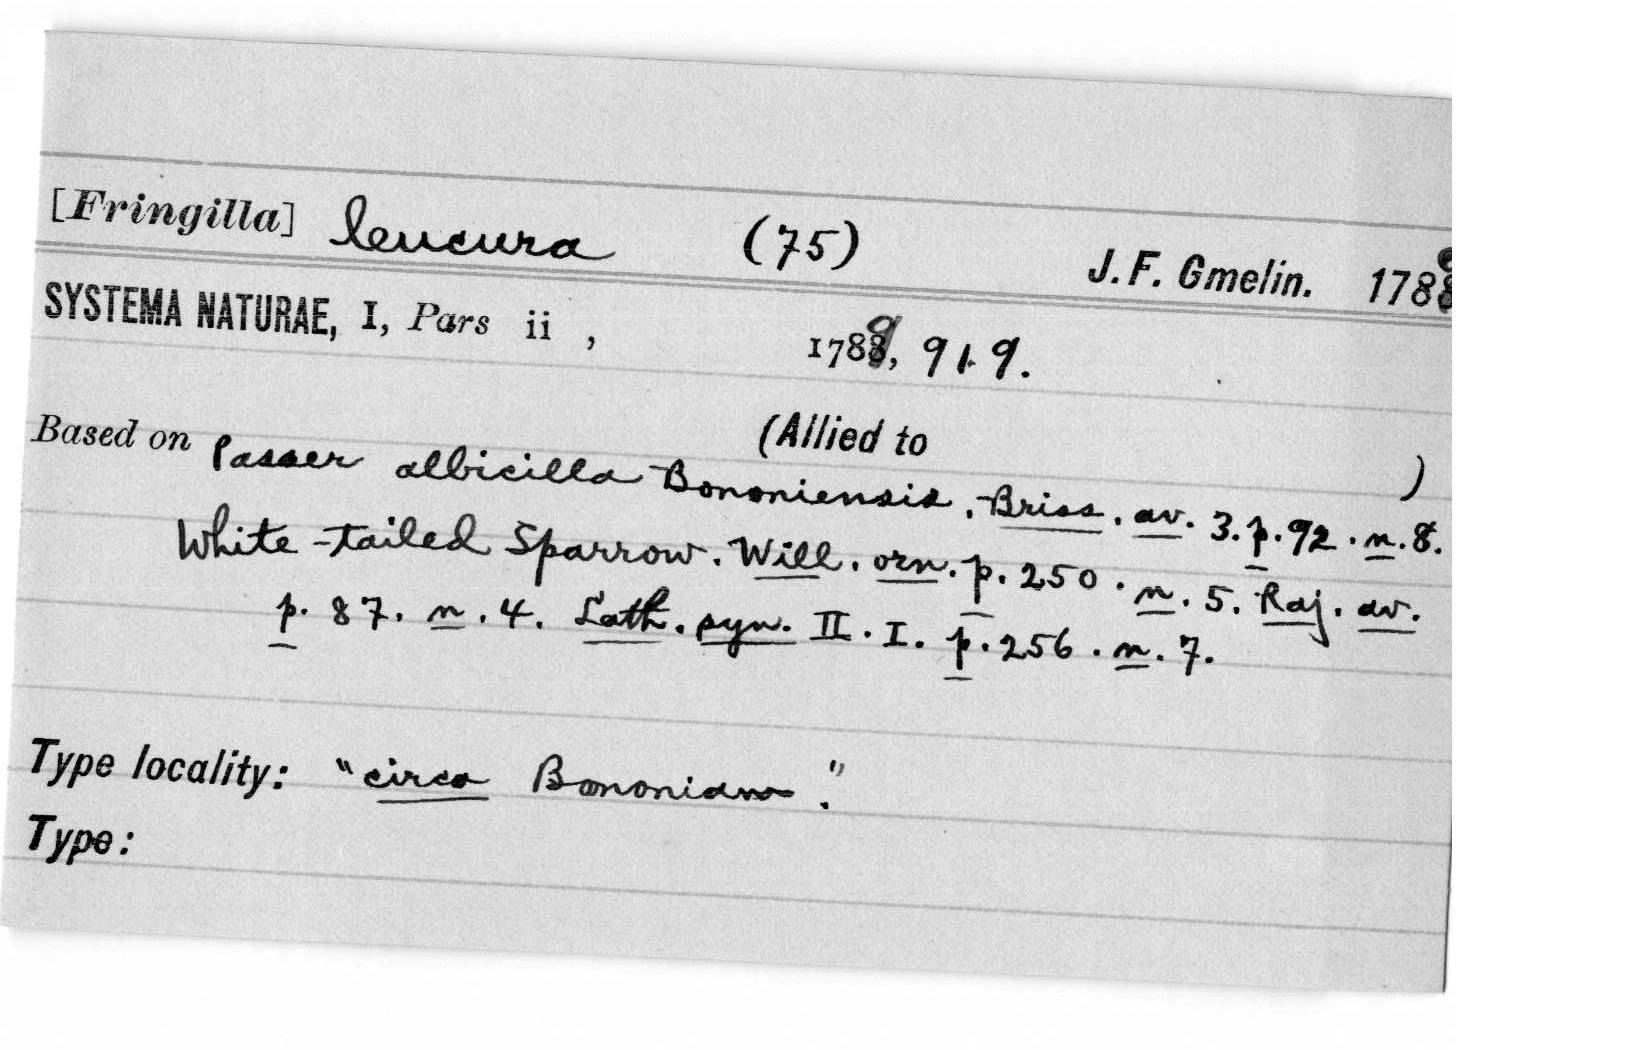 [Fringilla] leucura (75) J. F. Gmelin. 1789
SYSTEMA NATURAE, I, Pars ii , 1789, 919.
(Allied to )
Based on Passer albicilla Bononiensis. Briss. av. 3. p. 92. n. 8.
White-tailed Sparrow. Will. orn. p. 250. n. 5. Raj. av.
p. 87. n. 4. Lath. syn. II. I. p. 256. n. 7.
Type locality: "circa Bononiam."
Type: